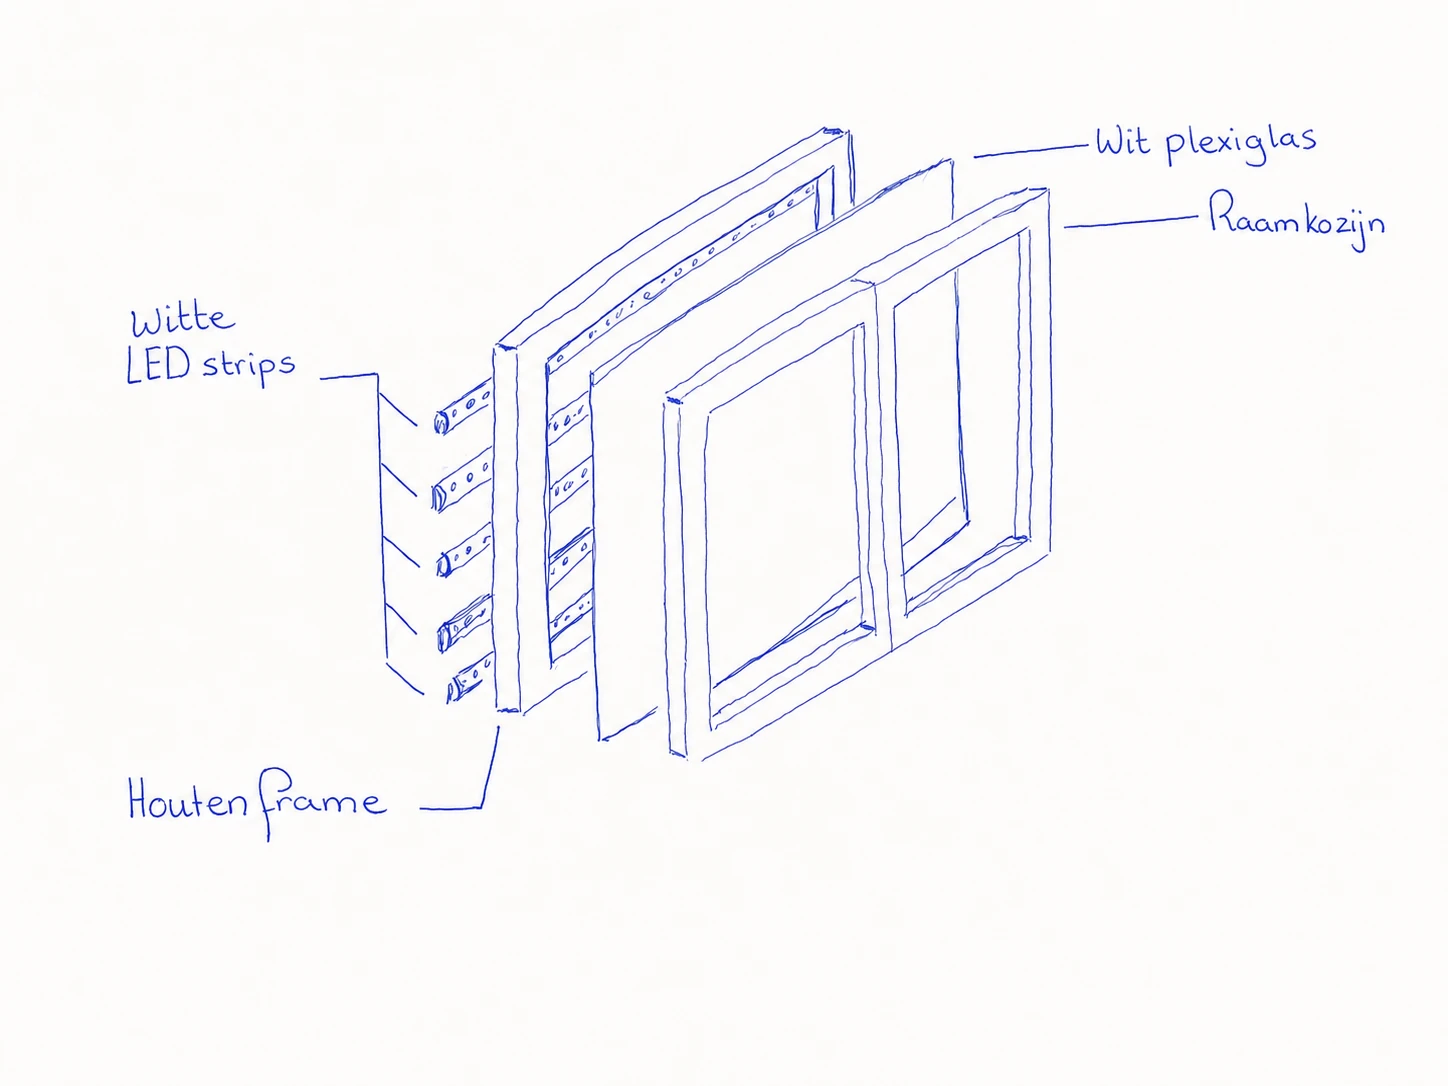 Wit plexiglas
Raamkozijn
Witte
LED strips
Houten frame